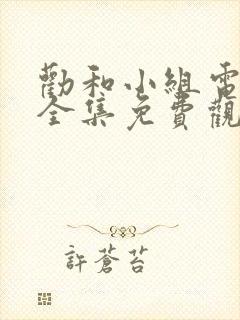 勸和小組電
全集免費觀
許蒼苔